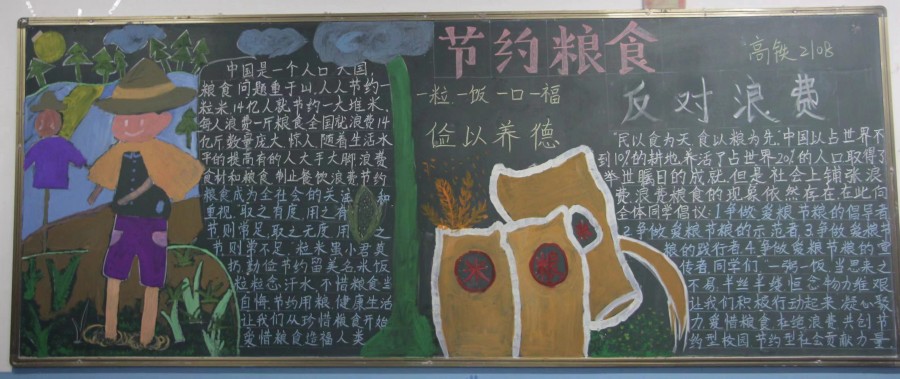 节约粮食
高铁2108
一粒一饭一口一福
反对浪费
俭以养德
中国是一个人口大国
粮食问题重于山,人人节约一
粒米14亿人就节约一大堆米,
每人浪费一斤粮食全国就浪费14
亿斤数量庞大惊人随着生活水
平的提高有的人大手大脚浪费
食材和粮食制止餐饮浪费节约
粮食成为全社会的关注和
重视,取之有度,用之有
节则常足,取之无度,用之
节则常不足,粒米虽小君莫
扔勤俭节约留美名,水饭
粒粒忘汗水,不惜粮食当
自悔节约用粮,健康生活
让我们从珍惜粮食开始
爱惜粮食造福人类
"民以食为天食以粮为先"中国以占世界不
到10%的耕地养活了占世界20%的人口取得了
举世瞩目的成就,但是社会上铺张浪
费,浪费粮食的现象依然存在,在此向
全体同学倡议:1.争做爱粮节粮的倡导者
2.争做爱粮节粮的示范者3.争做爱粮节
粮的践行者4.争做爱粮节粮的宣
传者,同学们,"一粥一饭,当思来之
不易,半丝半缕恒念物力维艰
让我们积极行动起来,凝心聚
力,爱惜粮食,杜绝浪费共创节
约型校园,节约型社会贡献力量
大